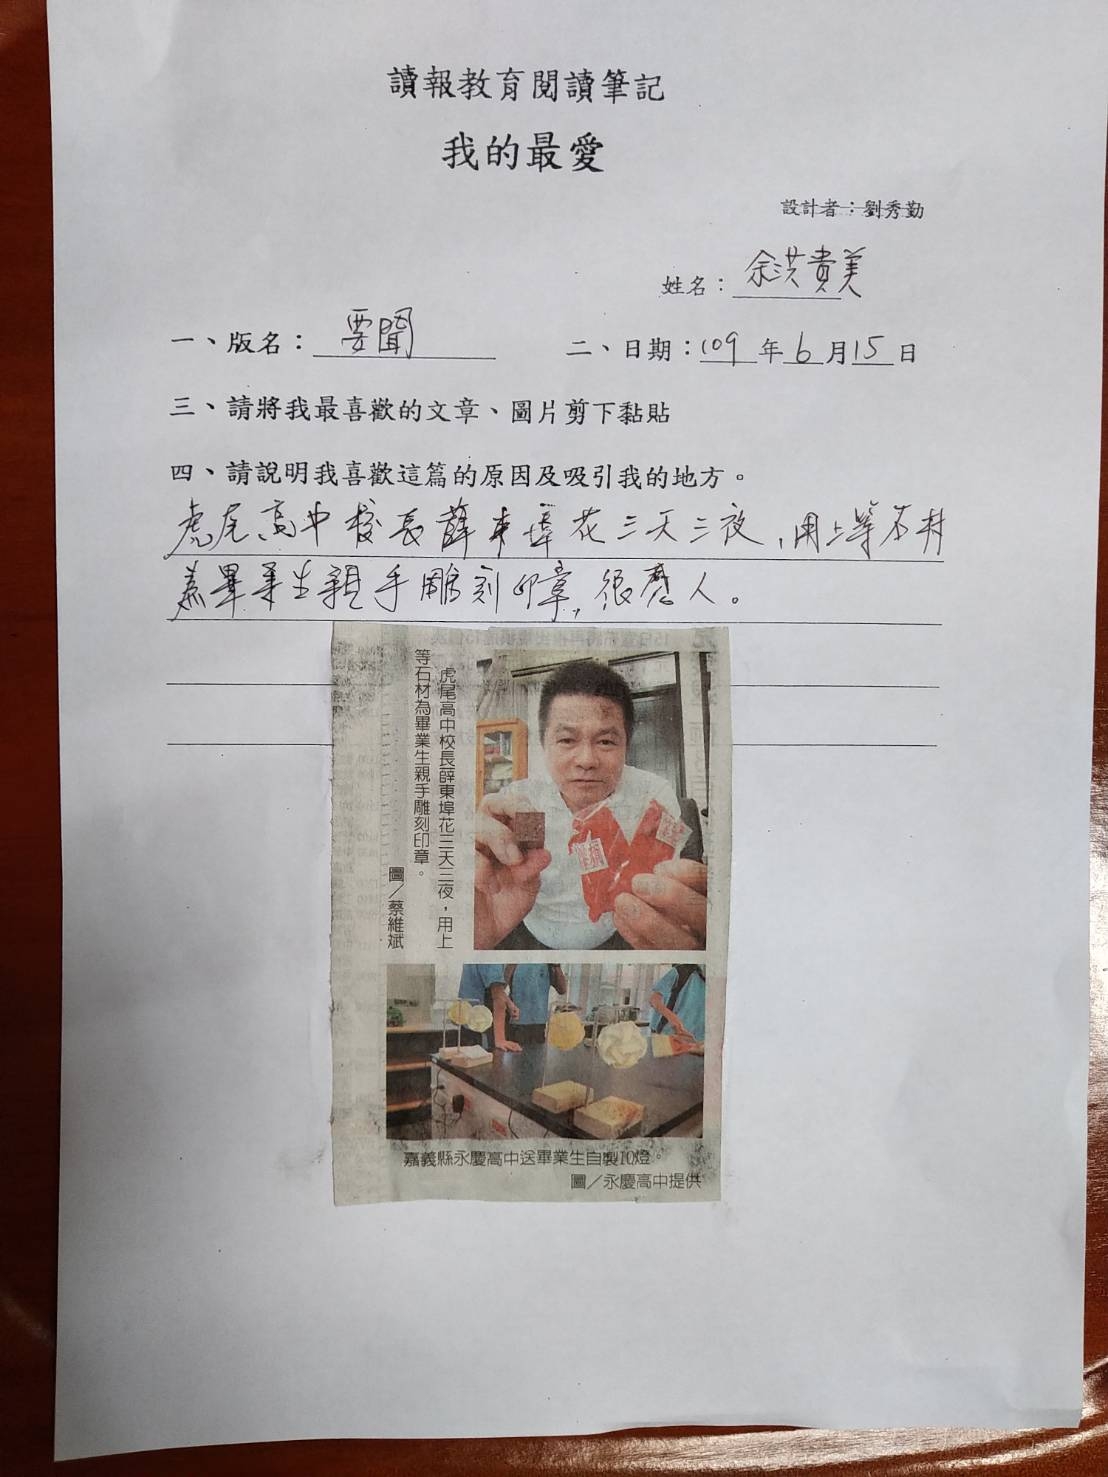 讀報教育閱讀筆記
我的最愛
設計者：劉秀勤
姓名：余洪貴美
一、版名：要聞
二、日期：109年6月15日
三、請將我最喜歡的文章、圖片剪下黏貼
四、請說明我喜歡這篇的原因及吸引我的地方。
虎尾高中校長薛東埠花三天三夜，用上等石材
為畢業生親手雕刻印章，很感人。
虎尾高中校長薛東埠花三天三夜，用上
等石材為畢業生親手雕刻印章。
圖／蔡維斌
嘉義縣永慶高中送畢業生自製IQ燈。
圖／永慶高中提供